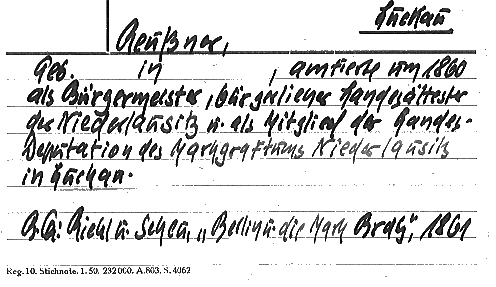 Luckau
Reußner,
Geb. in , amtierte um 1860
als Bürgermeister, bürgerlicher Landesältester
der Niederlausitz u. als Mitglied der Landes-
Deputation des Markgraftums Niederlausitz
in Luckau.
B.Q: Riehl u. Scheu, „Berlin u. die Mark Brdbg", 1861
Reg. 10. Stichnote. 1. 50. 232 000. A. 803. S. 4062